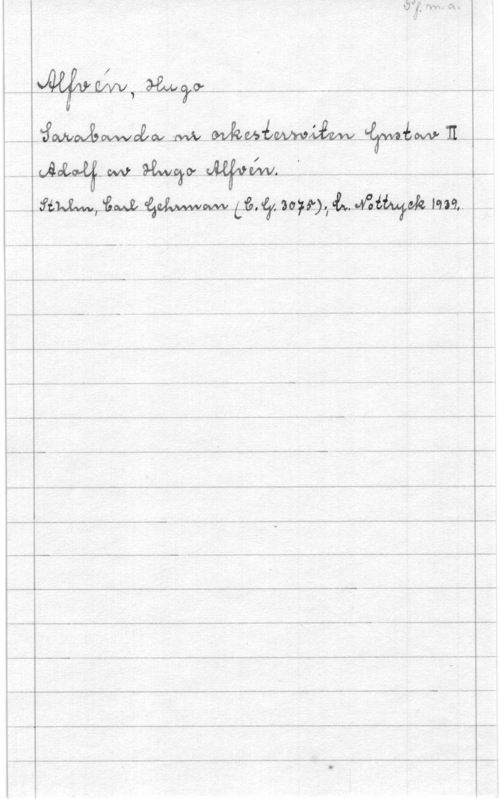 Sy. m. a.
Alfvén, Hugo
Sarabanda ur orkestersviten Gustav II
Adolf av Hugo Alfvén.
Sthlm, Carl Gehrman (C. G. 3075), tr. Nottryck 1939.